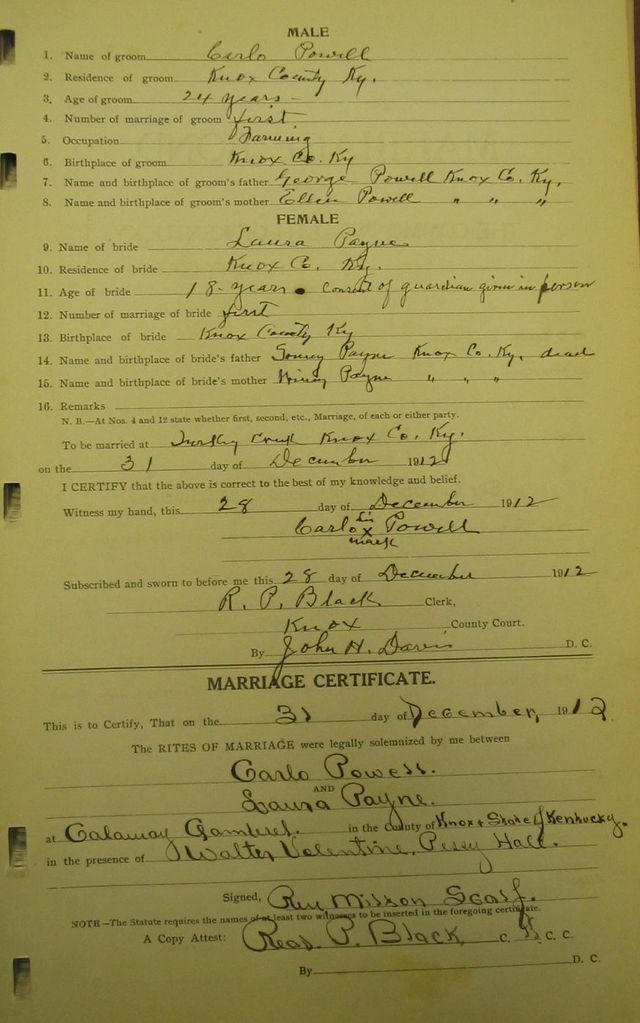 MALE
1. Name of groom Carlo Powell
2. Residence of groom Knox County Ky.
3. Age of groom 24 years -
4. Number of marriage of groom first
5. Occupation Farming
6. Birthplace of groom Knox Co. Ky
7. Name and birthplace of groom's father George Powell Knox Co. Ky.
8. Name and birthplace of groom's mother Ellen Powell " " "
FEMALE
9. Name of bride Laura Payne
10. Residence of bride Knox Co. Ky.
11. Age of bride 18 years. Consent of guardian given in person
12. Number of marriage of bride first
13. Birthplace of bride Knox County Ky
14. Name and birthplace of bride's father Payne Knox Co. Ky, dead
15. Name and birthplace of bride's mother Payne " " "
16. Remarks
N. B.—At Nos. 4 and 12 state whether first, second, etc., Marriage, of each or either party.
To be married at Turkey Creek Knox Co. Ky.
on the 31 day of December 1912
I CERTIFY that the above is correct to the best of my knowledge and belief.
Witness my hand, this 28 day of December 1912
his
Carlo x Powell
mark
Subscribed and sworn to before me this 28 day of December 1912
R. P. Black Clerk,
Knox County Court.
By John H. Davis D. C.
MARRIAGE CERTIFICATE.
This is to Certify, That on the 31 day of December, 1912
The RITES OF MARRIAGE were legally solemnized by me between
Carlo Powell.
AND
Laura Payne.
at Calaway Gambrel. in the County of Knox & State of Kentucky.
in the presence of Walter Valentine, Hall.
Signed, Rev
NOTE—The Statute requires the names of at least two witnesses to be inserted in the foregoing certificate.
A Copy Attest: P. Black C. C. C.
By D. C.